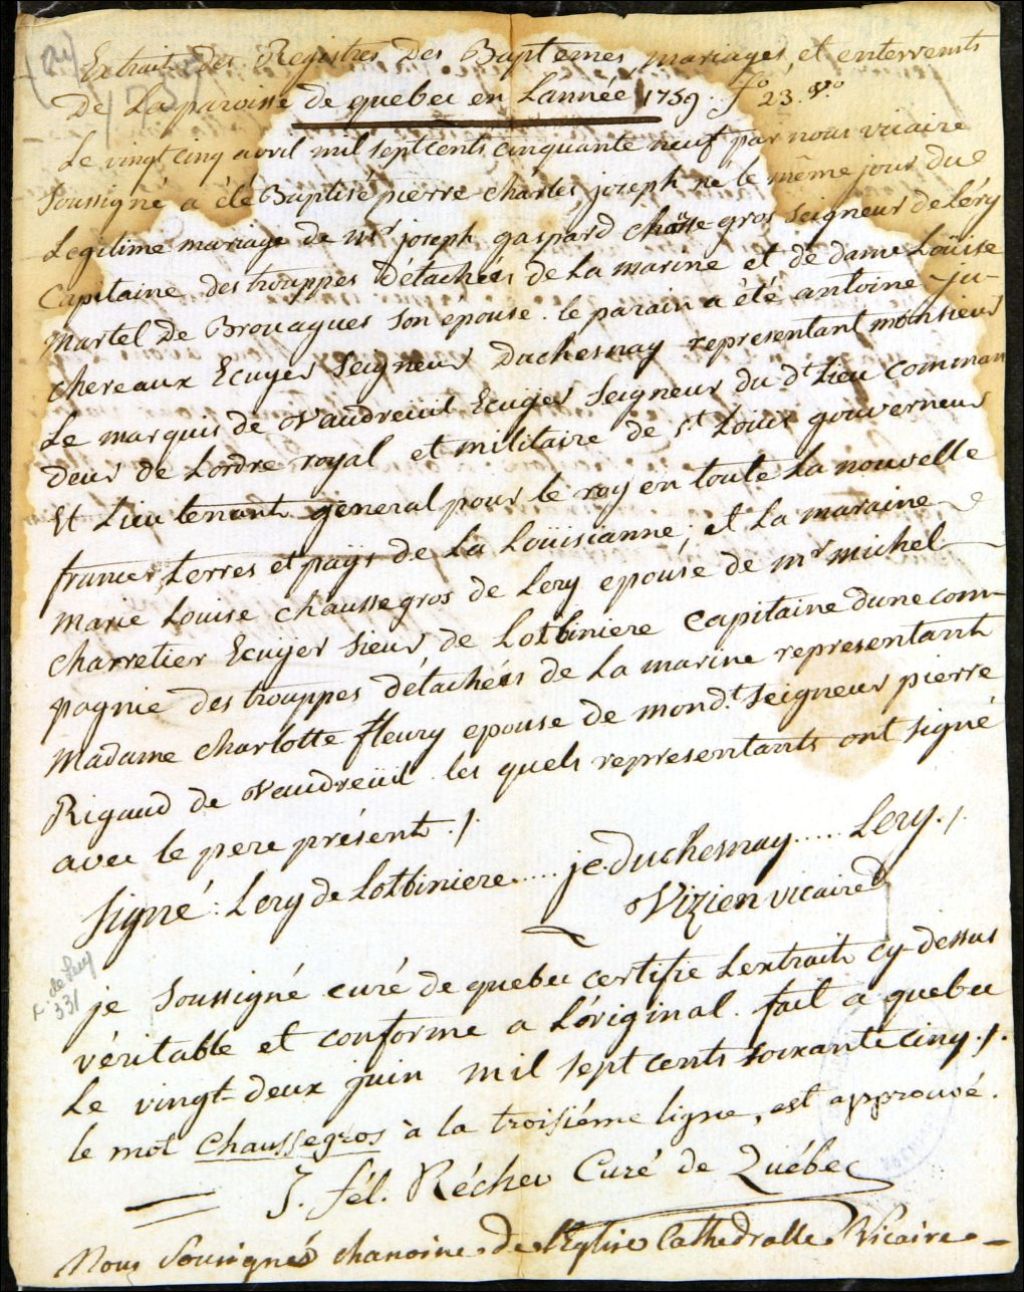 (24)
1759
Extrait des Registres Des Baptemes, mariages, et enterrements
De La paroisse de quebec en Lannée 1759. f.º 23. v.º
Le vingt cinq avril mil sept cents cinquante neuf par nous vicaire
Soussigné a été Baptisé pierre charles joseph né le même jour du
Legitime mariage de mr. joseph gaspard chausse gros Seigneur de Léry
Capitaine des trouppes détachées de La marine et de dame Loüise
martel De Brouagues son epouse. le parain a été antoine ju-
chereaux Ecuyer Seigneur Duchesnay representant monsieur
Le marquis de Vaudreüil Ecuyer Seigneur du dt. Lieu comman
deur de Lordre royal et militaire de st. Louis gouverneur
Et Lieutenant general pour le roy en toute La nouvelle
france, terres et païs de La Loüisianne; et La maraine
marie Louise chaussegros de Lery epouse de mr. michel
charretier Ecuyer Sieur de Lotbiniere Capitaine dune com-
pagnie des trouppes détachées de La marine representant
Madame charlotte fleury epouse de mond.t Seigneur pierre
Rigaud de Vaudreüil les quels representants ont signé
avec le pere présent ./.
Signé : Lery de Lotbiniere ..... je. Duchesnay ..... Lery. /.
Vizien vicaire
f. de Lery
331
je Soussigné curé de quebec certifie Lextrait cy-dessus
véritable et conforme a Lóriginal. fait a quebec
Le vingt-deux juin mil sept cents soixante cinq ./.
le mot Chaussegros à la troisiéme ligne, est approuvé.
J. fél. Récher Curé de Québec
Nous Sousignés chanoine de l'Eglise Cathedralle Vicaire -